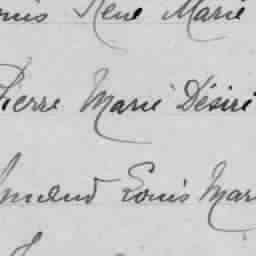 René Marie
Pierre Marie Désiré
Amand Louis Mar